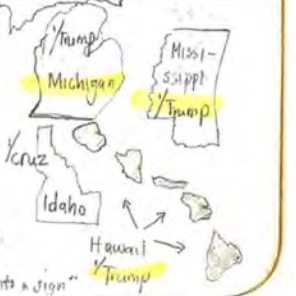 ✓Trump
Michigan
Missi-
ssippi
✓Trump
✓cruz
Idaho
Hawaii
✓Trump
a sign"